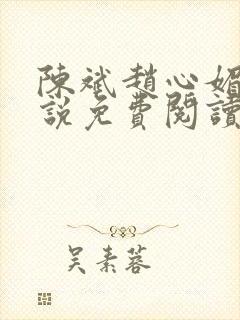 陳斌趙心媚
說免費閱讀
吳素蓉